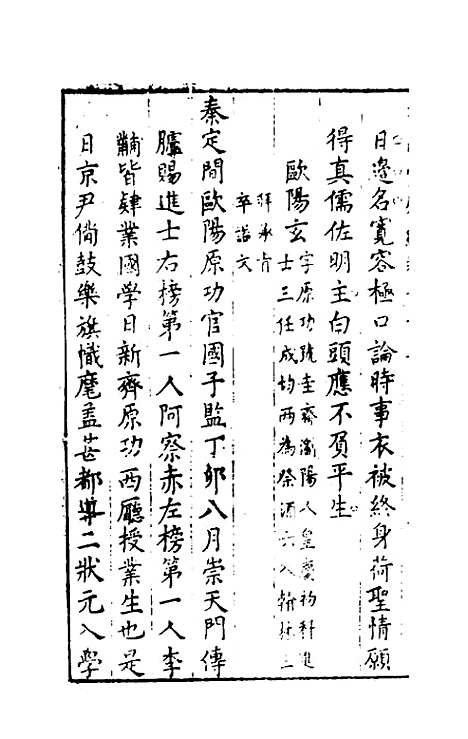 日邊名寬容極口論時事衣被終身荷聖情願
得真儒佐明主白頭應不負平生
歐陽玄
字原功號圭齋瀏陽人皇慶初科進
士三任成均兩為祭酒六入翰林三
拜承旨
卒諡文
泰定間歐陽原功官國子監丁卯八月崇天門傳
臚賜進士右榜第一人阿察赤左榜第一人李
黼皆肄業國學日新齊原功西廳授業生也是
日京尹倘鼓樂旗幟麾盖甚都導二狀元入學